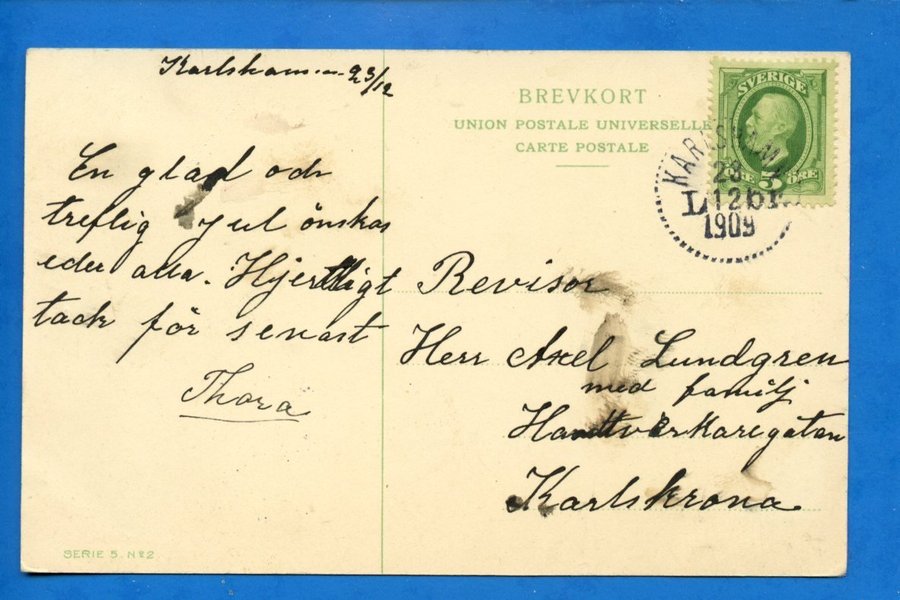 Karlshamn 23/12
BREVKORT
UNION POSTALE UNIVERSELLE
CARTE POSTALE
SVERIGE
5 ÖRE
KARLSHAMN
23 12
1909
En glad och
treflig jul önskas
eder alla. Hjertligt
tack för senast
Thora
Revisor
Herr Axel Lundgren
med familj
Handtverkaregatan
Karlskrona
SERIE 5. No 2